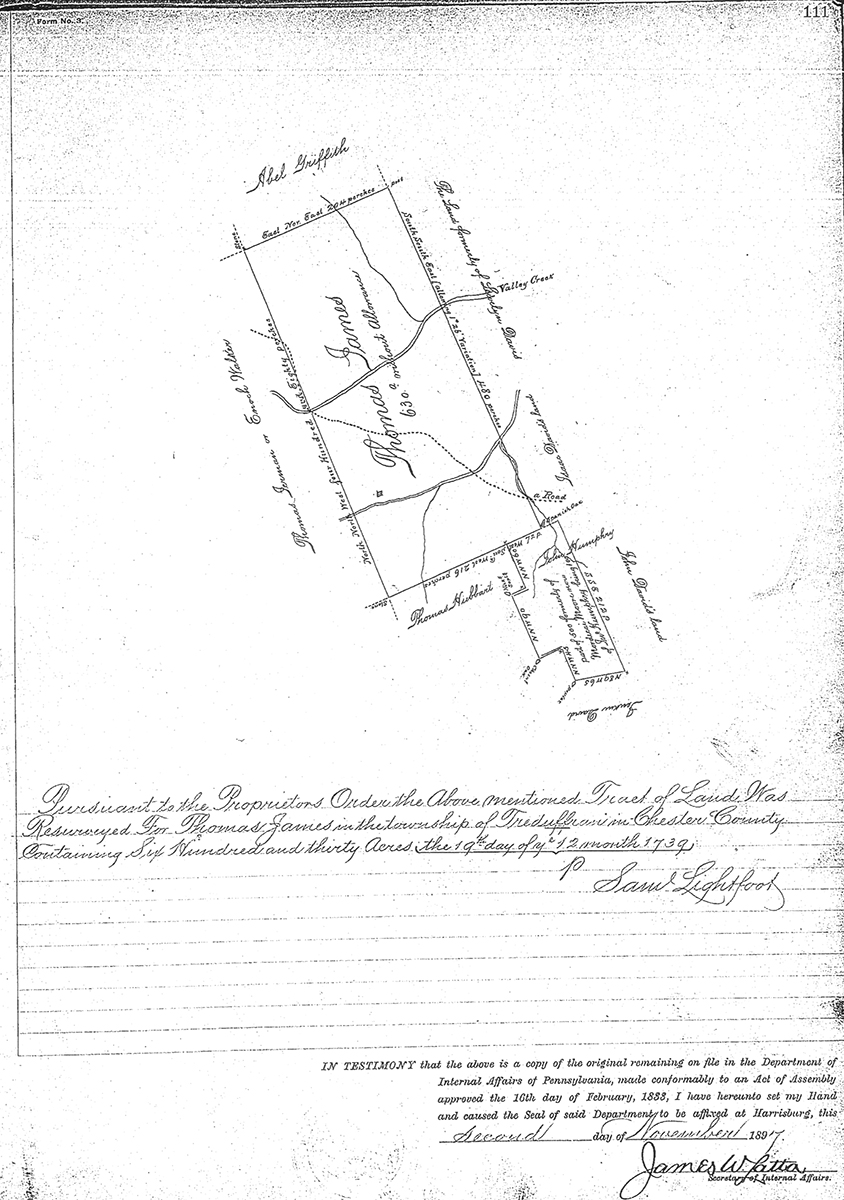 Form No. 3.
111
Abel Griffith
post
East Nor East 204 perches
Post
The Land formerly of Llewelyn David
South South East (allowing 1° 26' Variation) 480 perches
Valley Creek
Thomas James
630 a without Allowance
Thomas Jerman or Enoch Walker
North North West Four Hundred and Eighty perches
Isaac David's land
a Road
a Spanish Oak
John Humphry
John David's land
West 216 perches
Thomas Hubbart
NNW 60
NNW 90
NNW 45
part of 500 formerly of
SSE 212
N 89 W 65
Jenkin David
Pursuant to the Proprietors Order the Above mentioned Tract of Land Was
Resurveyed For Thomas James in the township of Treduffran in Chester County
Containing Six Hundred and thirty Acres the 19th day of ye 12 month 1739
P Saml Lightfoot
IN TESTIMONY that the above is a copy of the original remaining on file in the Department of
Internal Affairs of Pennsylvania, made conformably to an Act of Assembly
approved the 16th day of February, 1833, I have hereunto set my Hand
and caused the Seal of said Department to be affixed at Harrisburg, this
Second day of November 1897
James W. Latta
Secretary of Internal Affairs.